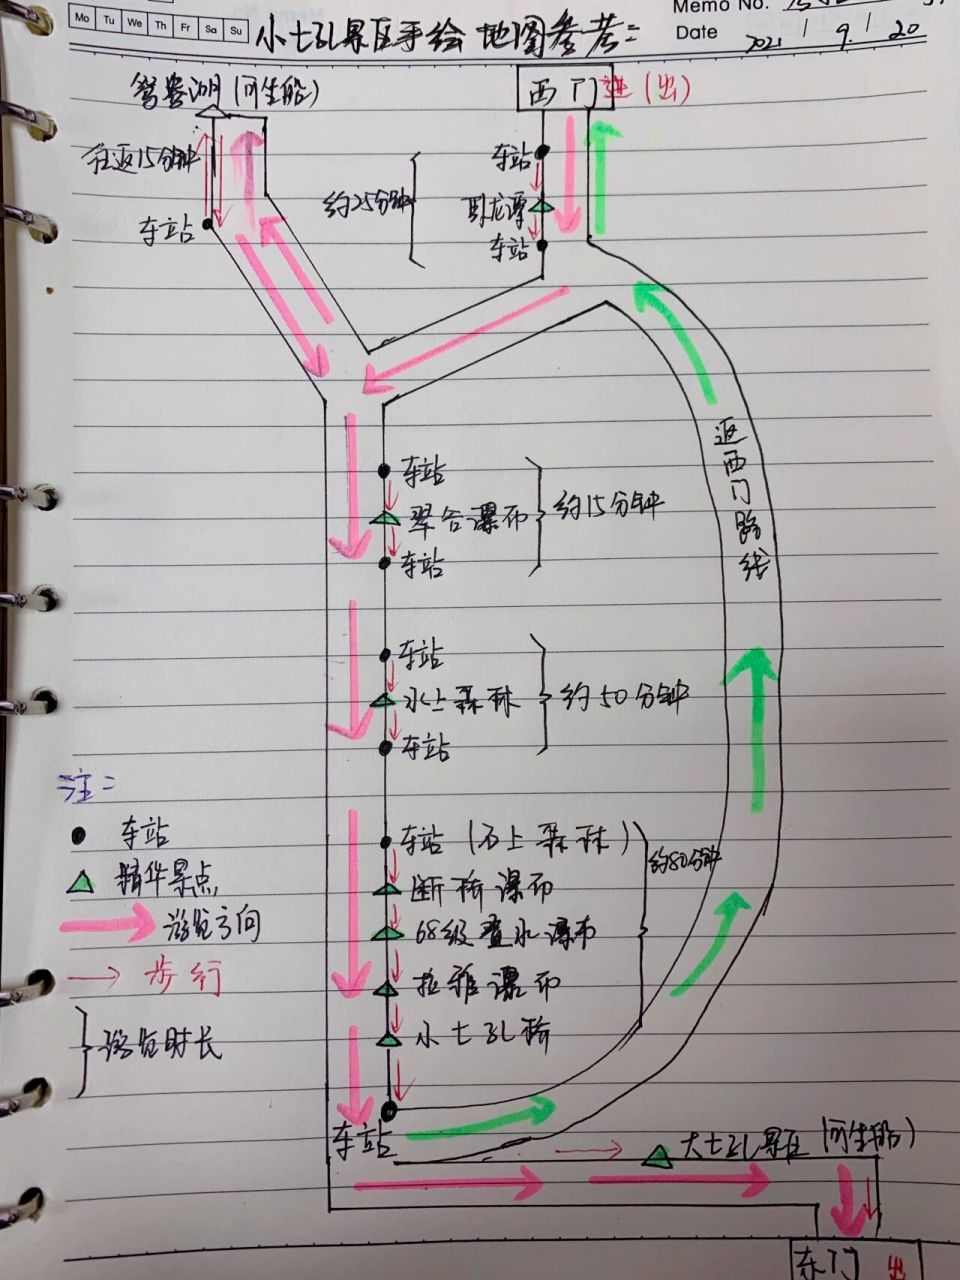 Memo No.
Mo Tu We Th Fr Sa Su
Date 2021 / 9 / 20
小七孔景区手绘地图参考：
鸳鸯湖（可坐船）
西门 进（出）
往返15分钟
车站
车站
卧龙潭
车站
约25分钟
车站
翠谷瀑布
车站
约15分钟
返西门路线
车站
水上森林
车站
约50分钟
车站（石上森林）
断桥瀑布
68级叠水瀑布
拉雅瀑布
小七孔桥
约80分钟
车站
注：
车站
精华景点
游览方向
步行
游览时长
大七孔景区（可坐船）
东门 出